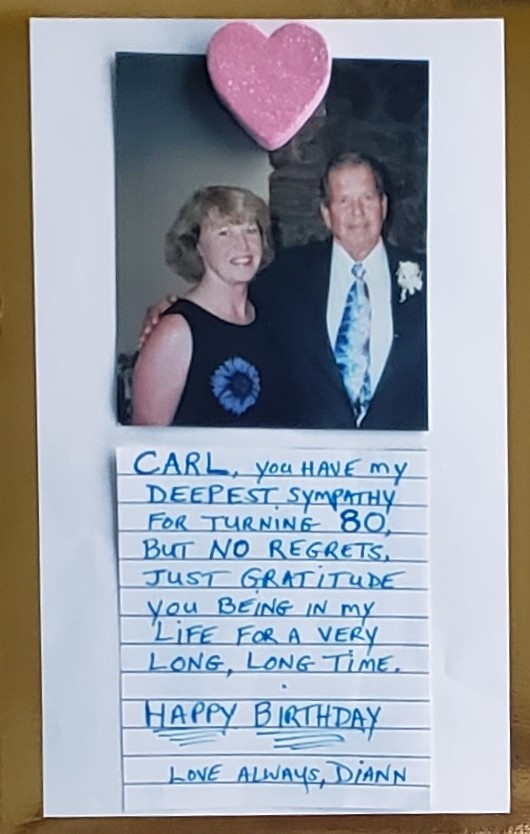 CARL, you HAVE my
DEEPEST SYMPATHY
FOR TURNING 80,
BUT NO REGRETS,
JUST GRATITUDE
you BEING IN my
LIFE FOR A VERY
LONG, LONG TIME.
HAPPY BIRTHDAY
LOVE ALWAYS, DIANN